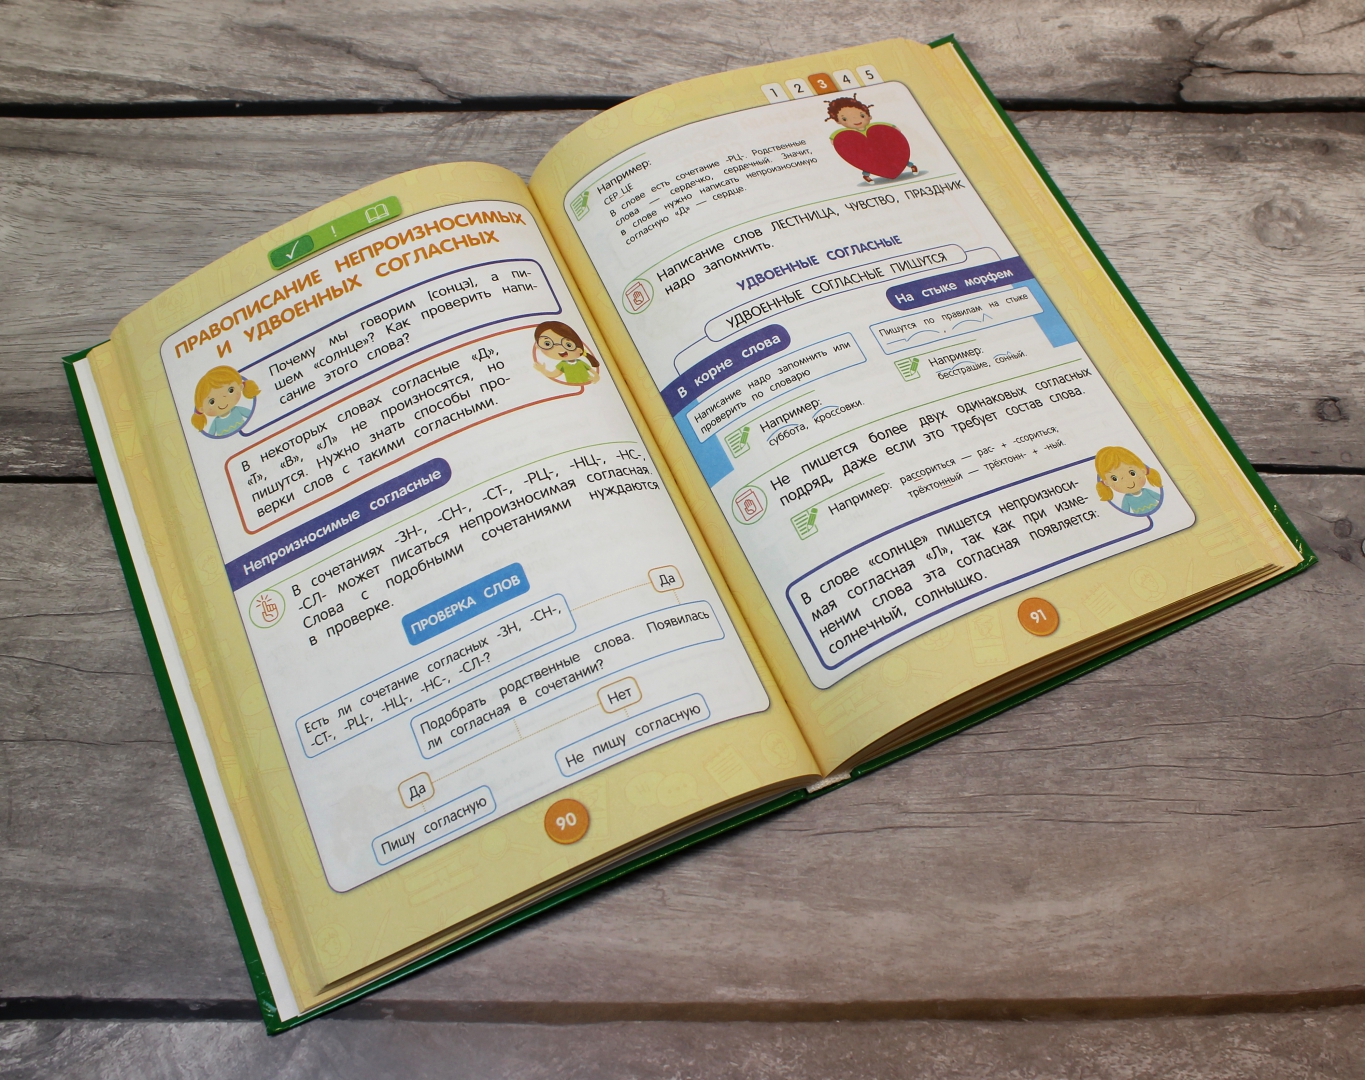 !
ПРАВОПИСАНИЕ НЕПРОИЗНОСИМЫХ
И УДВОЕННЫХ СОГЛАСНЫХ
Почему мы говорим [сонцэ], а пи-
шем «солнце»? Как проверить напи-
сание этого слова?
В некоторых словах согласные «Д»,
«Т», «В», «Л» не произносятся, но
пишутся. Нужно знать способы про-
верки слов с такими согласными.
Непроизносимые согласные
В сочетаниях -ЗН-, -СН-, -СТ-, -РЦ-, -НЦ-, -НС-,
-СЛ- может писаться непроизносимая согласная.
Слова с подобными сочетаниями нуждаются
в проверке.
ПРОВЕРКА СЛОВ
Есть ли сочетание согласных -ЗН, -СН-,
-СТ-, -РЦ-, -НЦ-, -НС-, -СЛ-?
Да
Подобрать родственные слова. Появилась
ли согласная в сочетании?
Нет
Не пишу согласную
Да
Пишу согласную
90
1 2 3 4 5
Например:
СЕР_ЦЕ
В слове есть сочетание -РЦ-. Родственные
слова — сердечко, сердечный. Значит,
в слове нужно написать непроизносимую
согласную «Д» — сердце.
Написание слов ЛЕСТНИЦА, ЧУВСТВО, ПРАЗДНИК
надо запомнить.
УДВОЕННЫЕ СОГЛАСНЫЕ
УДВОЕННЫЕ СОГЛАСНЫЕ ПИШУТСЯ
В корне слова
Написание надо запомнить или
проверить по словарю
Например:
суббота, кроссовки.
На стыке морфем
Пишутся по правилам на стыке
,
Например:
бесстрашие, сонный.
Не пишется более двух одинаковых согласных
подряд, даже если это требует состав слова.
Например: рассориться — рас- + -ссориться;
трёхтонный — трёхтонн- + -ный.
В слове «солнце» пишется непроизноси-
мая согласная «Л», так как при изме-
нении слова эта согласная появляется:
солнечный, солнышко.
91